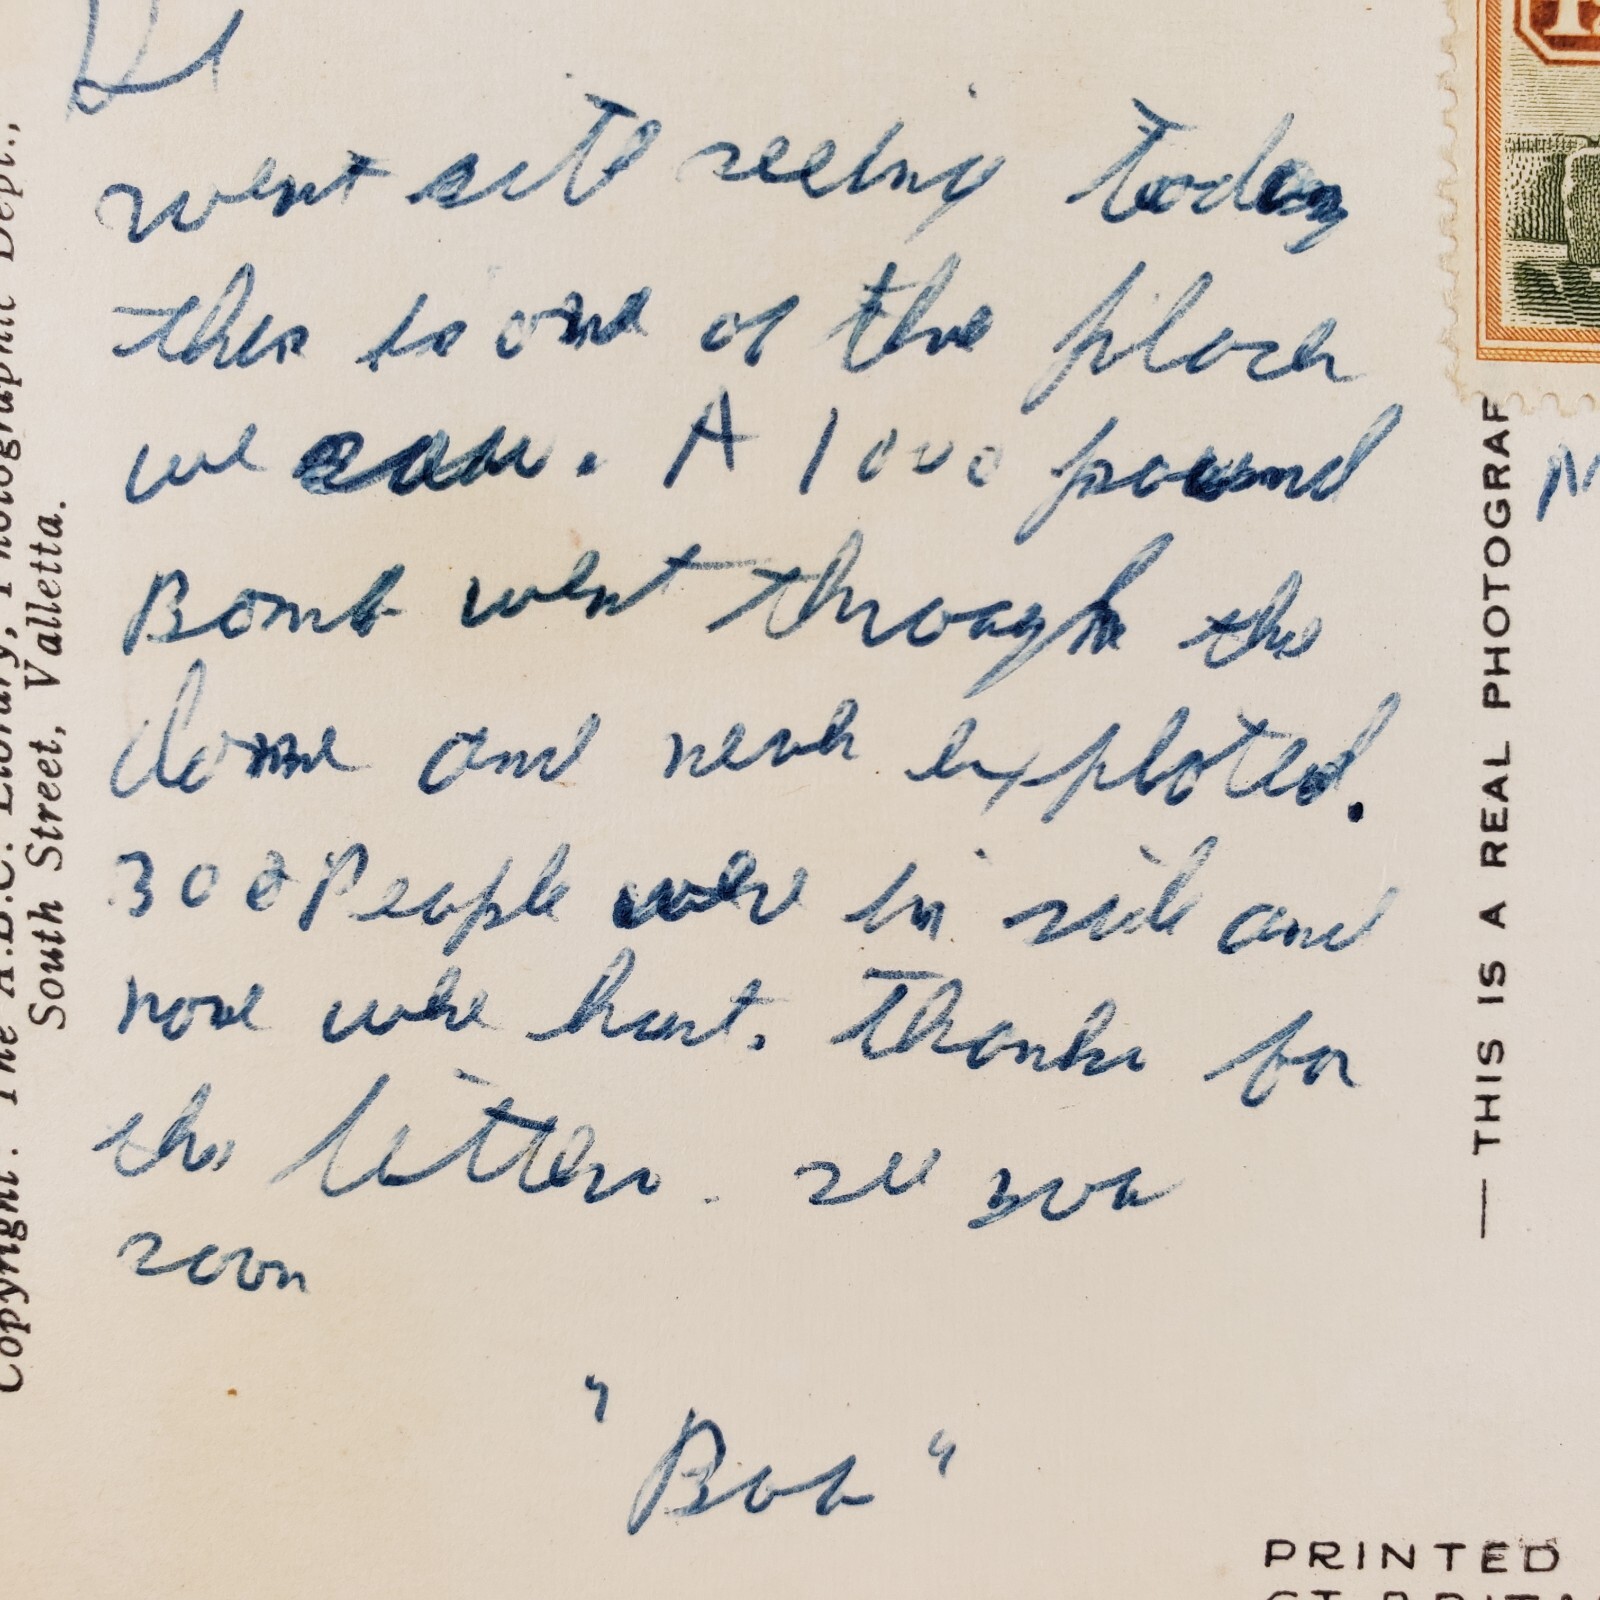 went site seeing today
this is one of the places
we saw. A 1000 pound
Bomb went through the
dome and never exploted.
300 People were in side and
none were hurt. Thanks for
the letters. see you
soon
"Bob"
Copyright: The A.B.C. Library, Photographic Dept.,
South Street, Valletta.
— THIS IS A REAL PHOTOGRAF
PRINTED